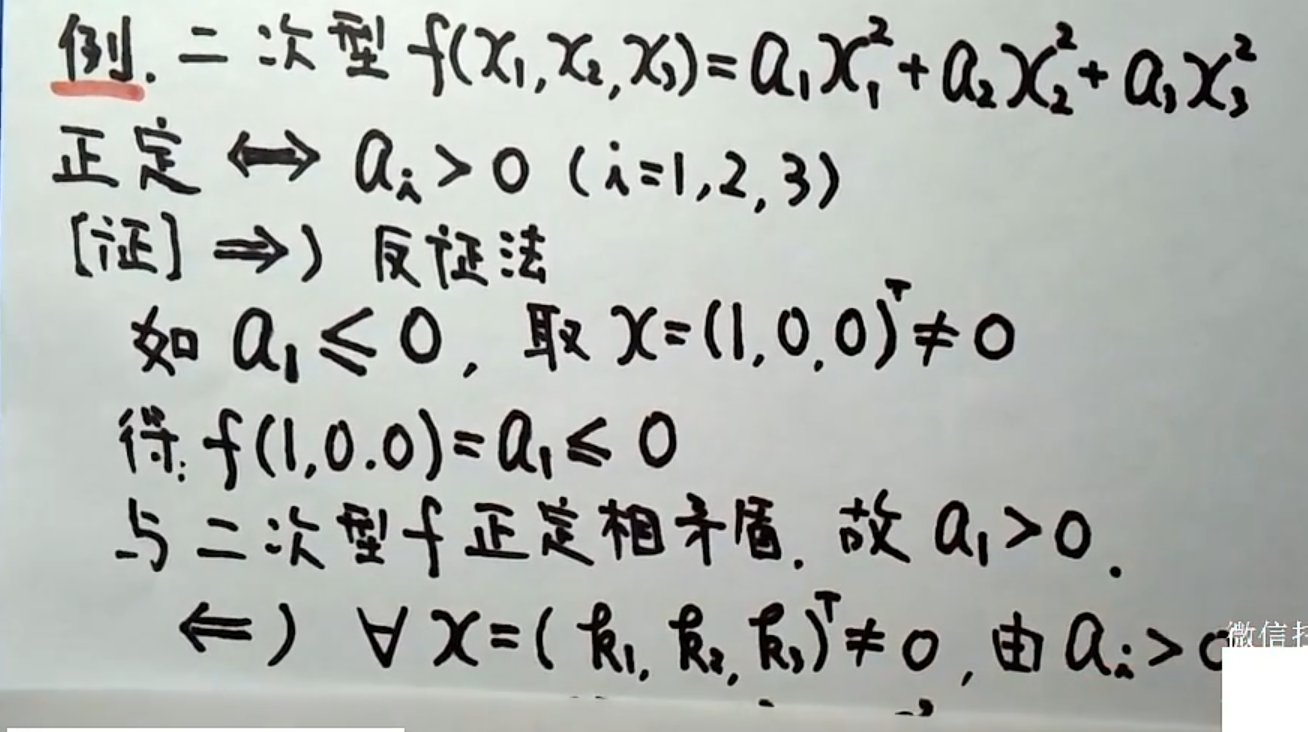 例. 二次型 f(x₁, x₂, x₃) = a₁x₁² + a₂x₂² + a₃x₃²
正定 ⟺ aᵢ > 0 (i=1,2,3)
[证] ⇒) 反证法
如 a₁ ≤ 0, 取 x=(1,0,0)ᵀ ≠ 0
得: f(1,0.0) = a₁ ≤ 0
与二次型 f 正定相矛盾. 故 a₁ > 0.
⇐) ∀ x=(k₁, k₂, k₃)ᵀ ≠ 0, 由 aᵢ > 0
微信扫